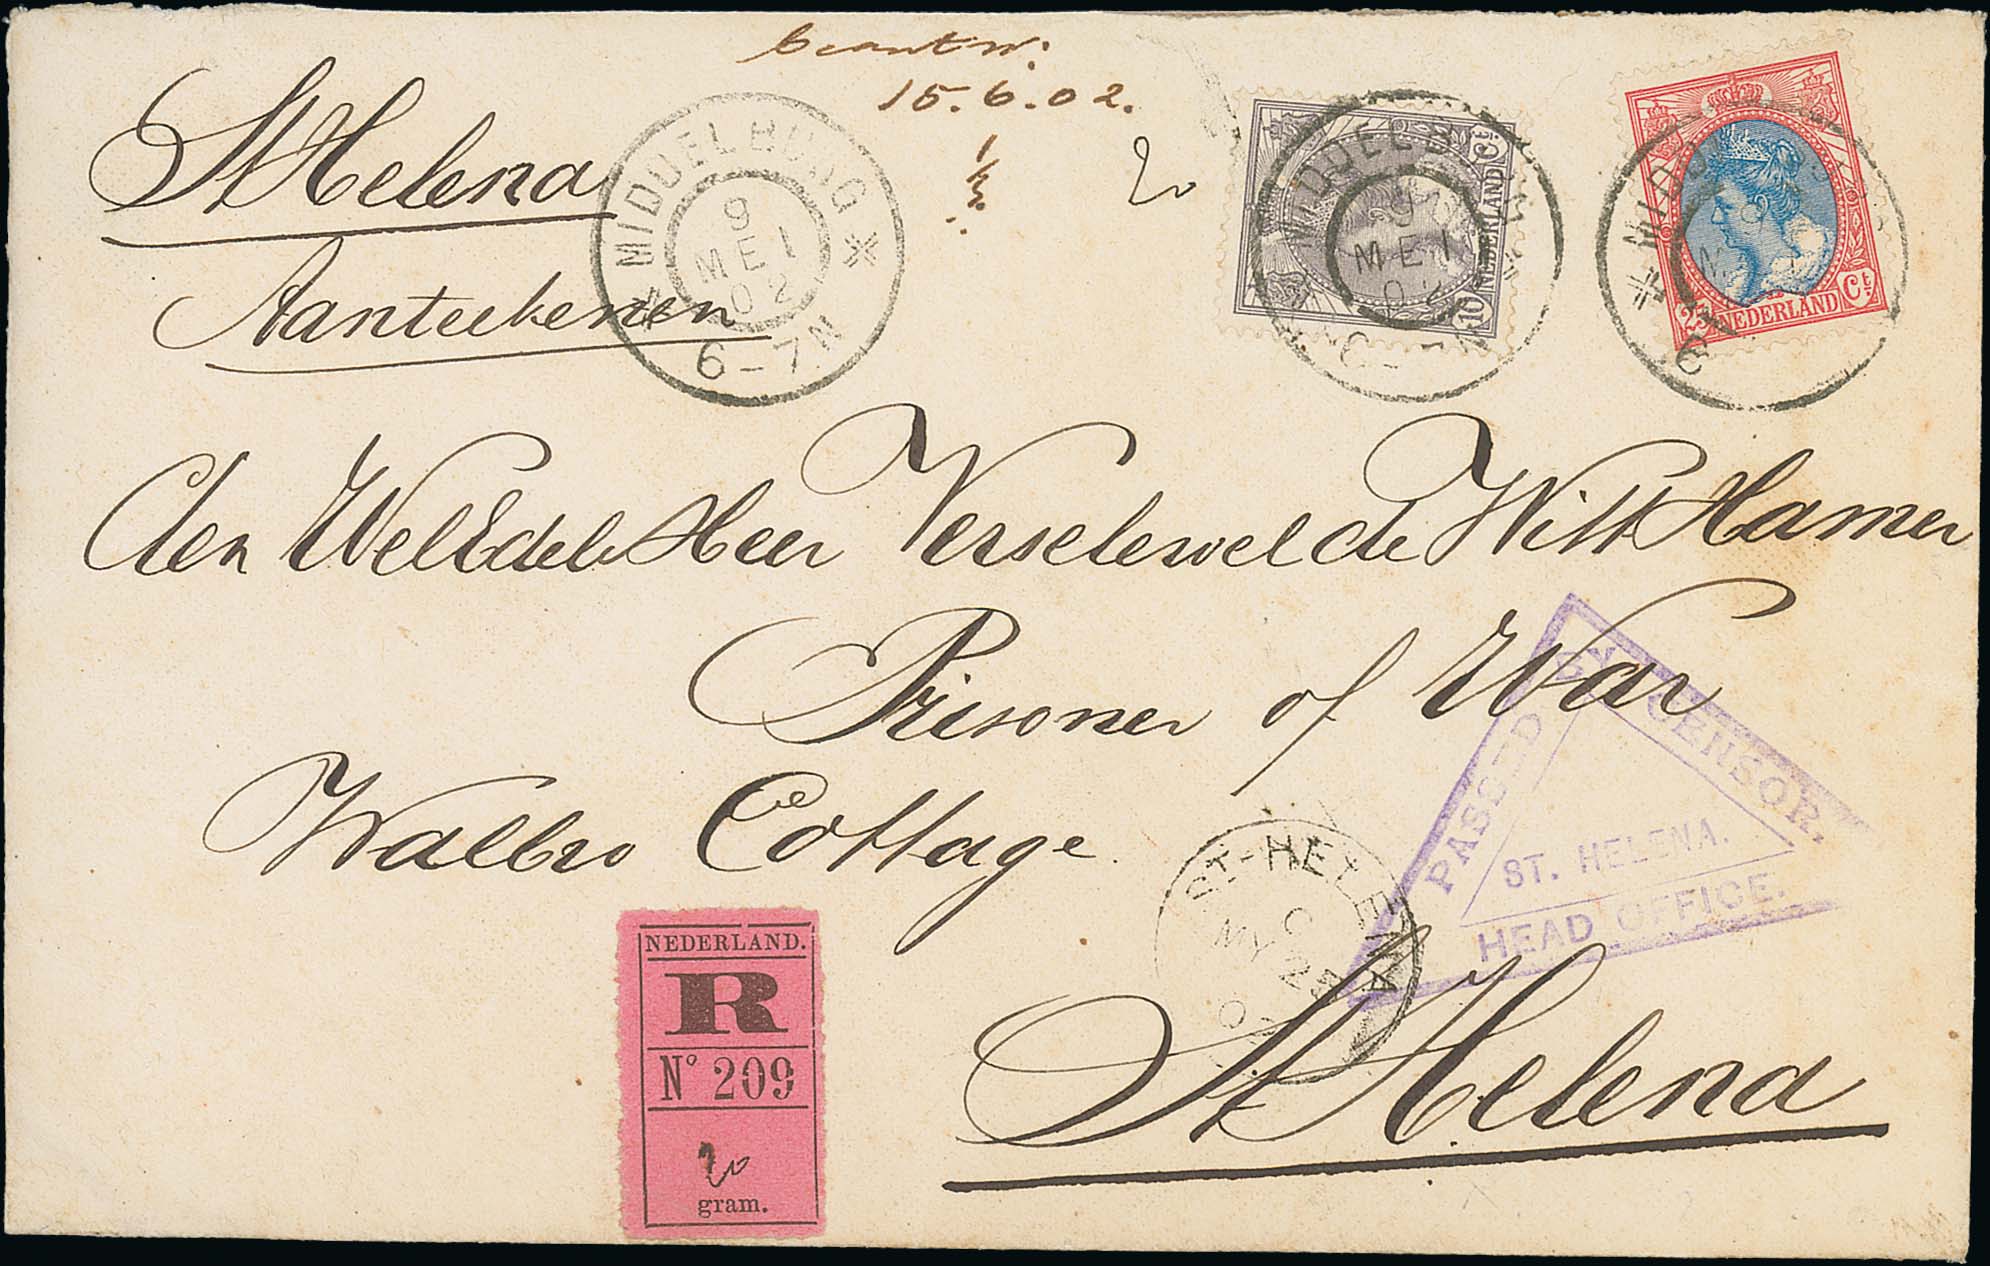 beantw.
15.6.02.
St Helena
Aanteekenen
MIDDELBURG
9
MEI
02
6-7N
20
MIDDELBURG
9
MEI
02
6-7N
10 NEDERLAND Ct
MIDDELBURG
25 NEDERLAND Ct
den WelEdele Heer Versélewel de Witt Hamer
Prisoner of War
Walbro Cottage
PASSED BY CENSOR.
ST. HELENA.
HEAD OFFICE.
ST-HELENA
C
MY 25
02
St Helena
NEDERLAND.
R
No 209
20
gram.